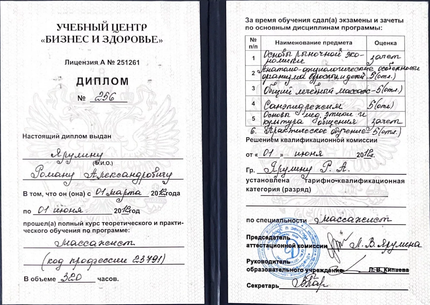 УЧЕБНЫЙ ЦЕНТР
«БИЗНЕС И ЗДОРОВЬЕ»
Лицензия А № 251261
ДИПЛОМ
№ 256
Настоящий диплом выдан
Ярулину
(Ф.И.О.)
Роману Александровичу
В том, что он (она) с 01 марта 2012 года
по 01 июня 2012 года
прошел(а) полный курс теоретического и практи-
ческого обучения по программе:
массажист
(код профессии 23791)
В объеме 320 часов.
За время обучения сдал(а) экзамены и зачеты
по основным дисциплинам программы:
№ п/п Наименование предмета Оценка
1 Основы рыночной эко-
номики зачет
2 взрослых и детей 5(отл.)
3 Общий лечебный массаж 5(отл.)
4 Санэпидрежим 5(отл.)
5 Основы мед. этики и
культура общения зачет
6. Практическое обучение 5(отл.)
Решением квалификационной комиссии
от «01» июня 2012г.
Гр. Ярулину Р. А.
установлена тарифно-квалификационная
категория (разряд)
по специальности массажист
Председатель
аттестационной комиссии Л.В.
Руководитель
образовательного учреждения
Секретарь